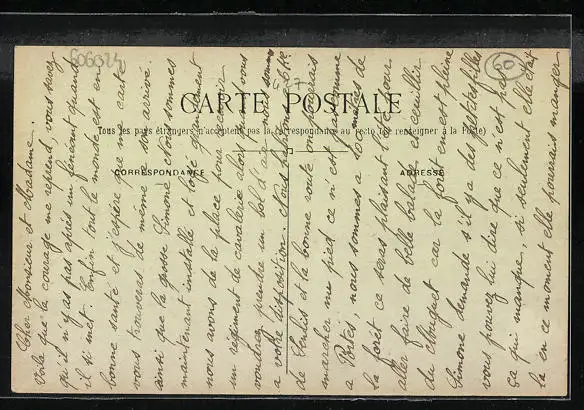 606024
60
CARTE POSTALE
Tous les pays étrangers n'acceptent pas la correspondance au recto (Se renseigner à la Poste)
CORRESPONDANCE
ADRESSE
Cher Monsieur et Madame.
Voila que la courage me reprend, vous savez
qu'il n'y as pas après un fénéant quant
il si met. Enfin tout le monde est en
bonne santé et j'espère que me carte
vous trouveras de même a son arrivé.
ainsi que la grosse Simone. Nous sommes
maintenant installé et logé grandement
nous avons de la place pour recevoir
un régiment de cavalerie alors quand vous
voudrez prendre un bol d'air nous sommes
a votre disposition. Nous sommes a 6 K
de Senlis et la bonne route on pourrais
marcher nu pied ce n'est pas comme
a Portes, nous sommes a 100 mètres de
la forêt ce seras plaisant l'été pour
aller faire de belle balade et ceuillir
du muguet car la forêt en est pleine
Simone demande s'il y a des petites filles
vous pouvez lui dire que ce n'est pas
ça qui manque, si seulement elle était
la en ce moment elle pourrais manger